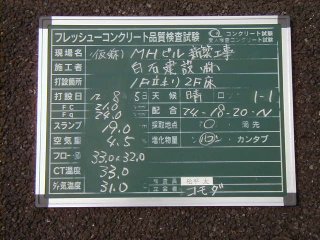 フレッシュコンクリート品質検査試験 コンクリート試験
現場名 (仮称)MHビル新築工事
施工者 白石建設㈱
打設箇所 1F立上り2F床
打設日 12 8 5 天候 晴 ロ 1-1
FC 21.0 配合 24-18-20-N
Fq 24.0
スランプ 19.0 採取地点 筒先
空気量 4.5 塩化物量 カンタブ
フロー値 33.0×32.0
CT温度 33.0
外気温度 31.0 立会者 コモダ